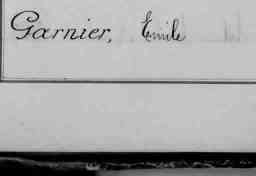 Garnier, Emile